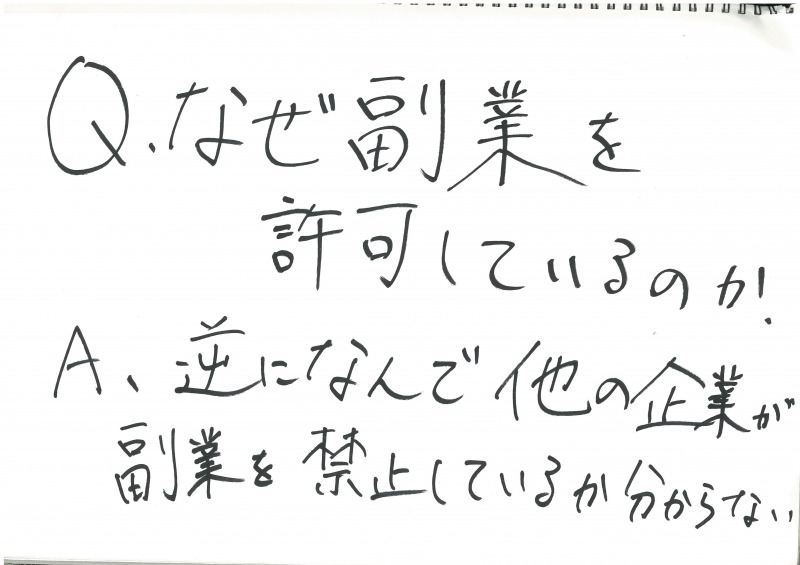 Q、なぜ副業を
許可しているのか!
A、逆になんで他の企業が
副業を禁止しているか分からない